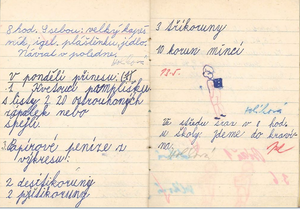 8 hod. S sebou: velký kapes-
ník, igel. pláštěnku, jídlo.
Návrat v poledne.
V pondělí přinesu:
1 Kvetoucí pampelišku
s listy 2. 20 ostrouhaných
zápalek nebo
špejlí.
3. Papírové peníze z
výkresu:
2 desetikoruny
2 pětikoruny
3 tříkoruny
10 korun mincí
Ve středu žiar v 8 hod.
u školy. Jdeme do